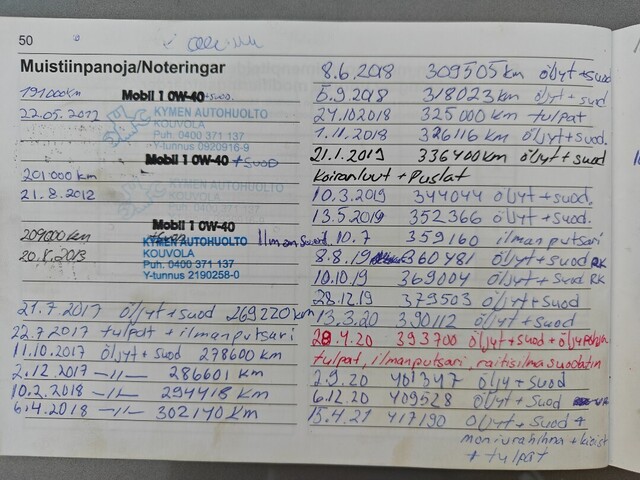 50
Muistiinpanoja/Noteringar
191000km Mobil 1 0W-40 + suod.
22.05.2012 KYMEN AUTOHUOLTO
KOUVOLA
Puh. 0400 371 137
Y-tunnus 0920916-9
Mobil 1 0W-40 + suod
201000 km KYMEN AUTOHUOLTO
21.8.2012 KOUVOLA
Puh. 0400 371 137
Mobil 1 0W-40
209000 km KYMEN AUTOHUOLTO Ilmansuod.
20.X.2013 KOUVOLA
Puh. 0400 371 137
Y-tunnus 2190258-0
21.7.2017 öljyt + suod 269220 km
22.7 2017 tulpat + ilmanputsari
11.10.2017 öljyt + suod 278600 km
2.12.2017 -11- 286601 km
10.2.2018 -11- 294418 km
6.4.2018 -11- 302140 km
8.6.2018 309505 km öljyt + suod
5.9.2018 318023 km öljyt + suod
24.10 2018 325000 km tulpat
1.11.2018 326116 km öljyt + suod.
21.1.2019 336400 km öljyt + suod
Koiranluut + Puslat
10.3.2019 344044 öljyt + suod.
13.5.2019 352366 öljyt + suod.
10.7 359160 ilmanputsari
8.8.19 360481 öljyt + suod RK
10.10.19 369004 öljyt + suod RK
28.12.19 379503 öljyt + suod
13.3.20 390112 öljyt + suod
28.4.20 393700 öljyt + suod + öljypohja
tulpat, ilmanputsari, raitisilmasuodatin
2.9.20 401347 öljyt + suod
6.12.20 409528 öljyt + suod
15.4.21 417190 öljyt + suod +
moniurahihna + kirist
+ tulpat